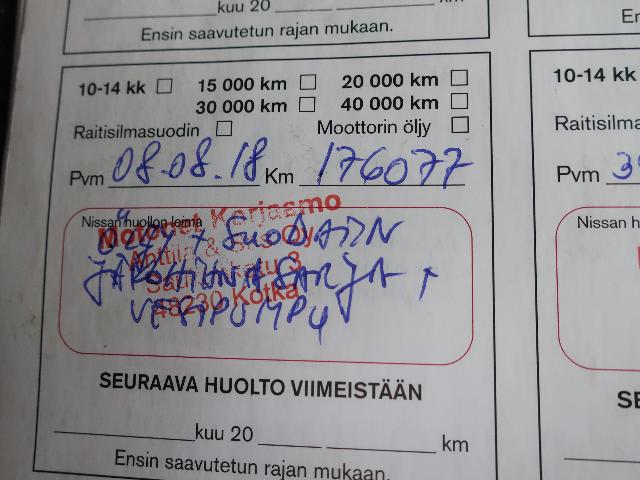 kuu 20 km
Ensin saavutetun rajan mukaan.
10-14 kk 15 000 km 20 000 km
30 000 km 40 000 km
Raitisilmasuodin Moottorin öljy
Pvm 08.08.18 Km 176077
Nissan huollon leima
Motovet Korjaamo
Anttila & Oy
3
48230 Kotka
ÖLJY + SUODATIN
JAKOHIHNASARJA +
VESIPUMPPU
SEURAAVA HUOLTO VIIMEISTÄÄN
kuu 20 km
Ensin saavutetun rajan mukaan.
Er
10-14 kk
Raitisilma
Pvm 3
Nissan h
SE